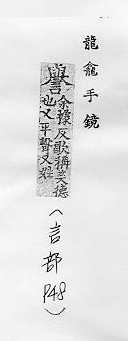 龍龕手鏡
譽 余據反歌稱美德
也又平聲又姓
(言部
P48)